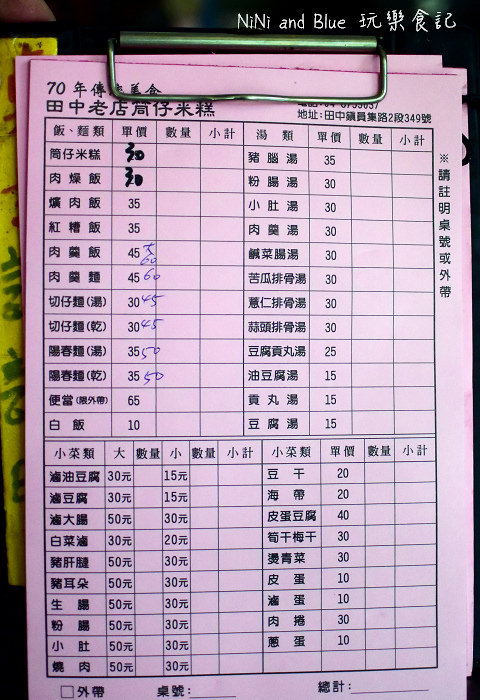 NiNi and Blue 玩樂食記
70年傳統美食
田中老店筒仔米糕
地址:田中鎮員集路2段349號
飯、麵類 單價 數量 小計 湯類 單價 數量 小計
筒仔米糕 30 豬腦湯 35
肉燥飯 30 粉腸湯 30
爌肉飯 35 小肚湯 30
紅糟飯 35 肉羹湯 30
肉羹飯 45 60 鹹菜腸湯 30
肉羹麵 45 60 苦瓜排骨湯 30
切仔麵(湯) 30 45 薏仁排骨湯 30
切仔麵(乾) 30 45 蒜頭排骨湯 30
陽春麵(湯) 35 50 豆腐貢丸湯 25
陽春麵(乾) 35 50 油豆腐湯 15
便當(限外帶) 65 貢丸湯 15
白飯 10 豆腐湯 15
※請註明桌號或外帶
小菜類 大 數量 小 數量 小計 小菜類 單價 數量 小計
滷油豆腐 30元 15元 豆干 20
滷豆腐 30元 15元 海帶 20
滷大腸 50元 30元 皮蛋豆腐 40
白菜滷 30元 20元 筍干梅干 30
豬肝腱 50元 30元 燙青菜 30
豬耳朵 50元 30元 皮蛋 10
生腸 50元 30元 滷蛋 10
粉腸 50元 30元 肉捲 30
小肚 50元 30元 蔥蛋 10
燒肉 50元 30元
□外帶 桌號: 總計: